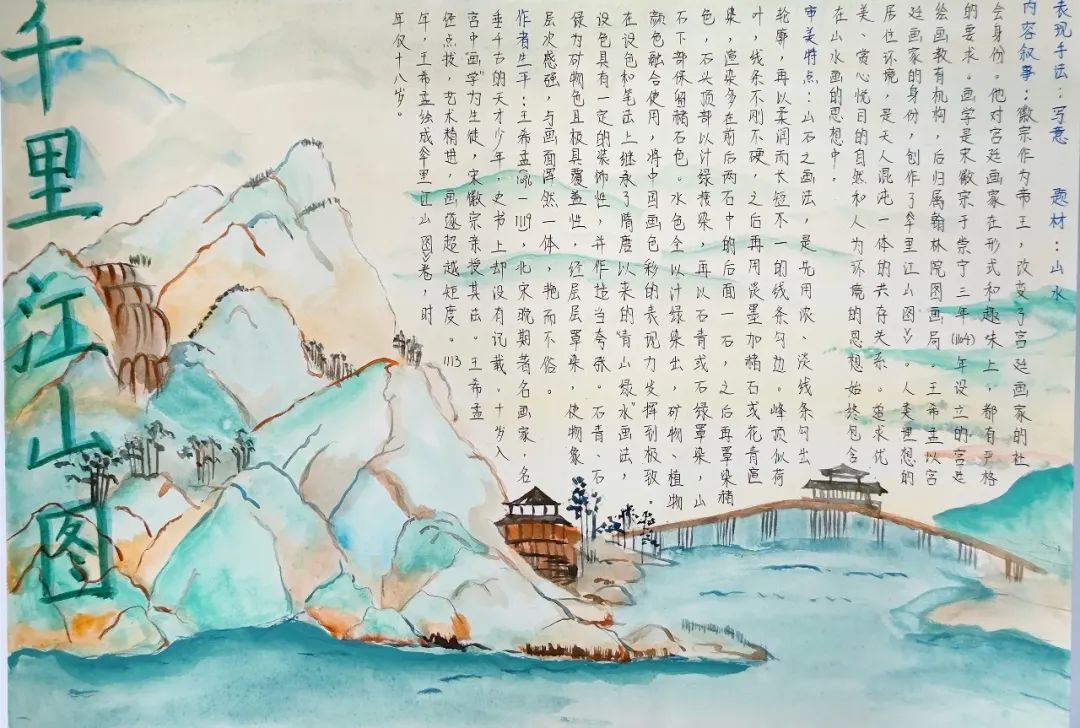 千里江山图
表现手法：写意 题材：山水
内容叙事：徽宗作为帝王，改变了宫廷画家的社
会身份。他对宫廷画家在形式和趣味上，都有严格
的要求。画学是宋徽宗于崇宁三年(1104)年设立的宫廷
绘画教有机构，后归属翰林院图画局。王希孟以宫
廷画家的身份，创作了《千里江山图》。人类理想的
居住环境，是天人混沌一体的共存关系。追求优
美、赏心悦目的自然和人为环境的思想始终包含
在山水画的思想中。
审美特点：山石之画法，是先用浓、淡线条勾出
轮廓，再以柔润而长短不一的线条勾边。峰顶似荷
叶，线条不刚不硬，之后再用淡墨加赭石或花青渲
染，渲染多在前后两石中的后面一石，之后再罩染赭
色，石头顶部以汁绿接染，再以石青或石绿罩染，山
石下部保留赭石色。水色全以汁绿染出，矿物、植物
颜色融合使用，将中国画色彩的表现力发挥到极致。
在设色和笔法上继承了隋唐以来的"青山绿水"画法，
设色具有一定的装饰性，并作适当夸张。石青、石
绿为矿物色且极具覆盖性，经层层罩染，使物象
层次感强，与画面浑然一体，艳而不俗。
作者生平：王希孟(1096—1119)，北宋晚期著名画家，名
垂千古的天才少年，史书上却没有记载。十岁入
宫中"画学"为生徒，宋徽宗亲授其法。王希孟
经点拨，艺术精进，画遂超越矩度。1113
年，王希孟独成《千里江山图》卷，时
年仅十八岁。